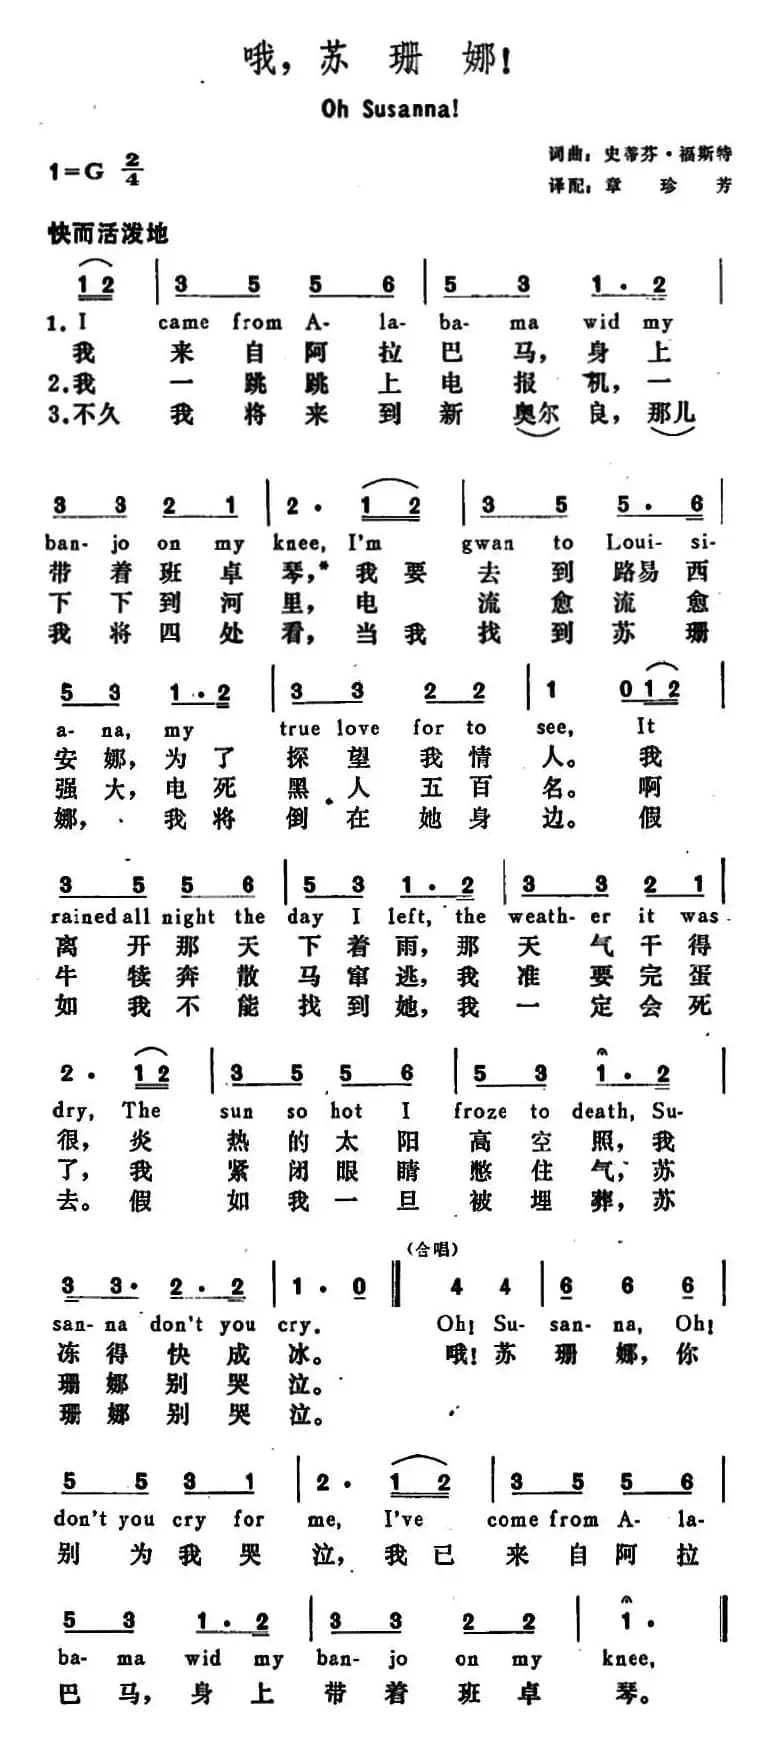 哦，苏珊娜！
Oh Susanna!
1=G 2/4
词曲：史蒂芬·福斯特
译配：章珍芳
快而活泼地
1 2 | 3 5 5 6 | 5 3 1 . 2 |
1. I came from A- la- ba- ma wid my
我 来 自 阿 拉 巴 马，身 上
2.我 一 跳 跳 上 电 报 机，一
3.不久 我 将 来 到 新 奥尔 良，那儿
3 3 2 1 | 2 . 1 2 | 3 5 5 . 6 |
ban- jo on my knee, I'm gwan to Loui- si-
带 着 班 卓 琴，* 我 要 去 到 路易 西
下 下 到 河 里，电 流 愈 流 愈
我 将 四 处 看，当 我 找 到 苏 珊
5 3 1 . 2 | 3 3 2 2 | 1 0 1 2 |
a- na, my true love for to see, It
安 娜，为 了 探 望 我 情 人。我
强 大，电 死 黑 人 五 百 名。啊
娜，我 将 倒 在 她 身 边。假
3 5 5 6 | 5 3 1 . 2 | 3 3 2 1 |
rained all night the day I left, the weath- er it was
离 开 那 天 下 着 雨，那 天 气 干 得
牛 犊 奔 散 马 窜 逃，我 准 要 完 蛋
如 我 不 能 找 到 她，我 一 定 会 死
2 . 1 2 | 3 5 5 6 | 5 3 1 . 2 |
dry, The sun so hot I froze to death, Su-
很，炎 热 的 太 阳 高 空 照，我
了，我 紧 闭 眼 睛 憋 住 气，苏
去。假 如 我 一 旦 被 埋 葬，苏
(合唱)
3 3 . 2 . 2 | 1 . 0 || 4 4 | 6 6 6 |
san- na don't you cry. Oh! Su- san- na, Oh!
冻 得 快 成 冰。哦！苏 珊 娜，你
珊 娜 别 哭 泣。
珊 娜 别 哭 泣。
5 5 3 1 | 2 . 1 2 | 3 5 5 6 |
don't you cry for me, I've come from A- la-
别 为 我 哭 泣，我 已 来 自 阿 拉
5 3 1 . 2 | 3 3 2 2 | 1 . ||
ba- ma wid my ban- jo on my knee,
巴 马，身 上 带 着 班 卓 琴。